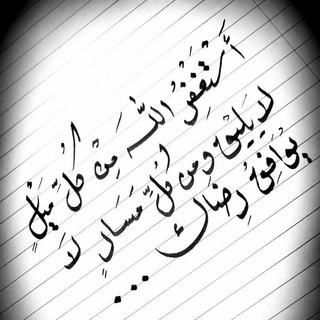 أَسْتَغْفِرُ اللّٰه مِنْ كُلِّ مَيْلٍ
لا يَليق ومن كُلِّ مَسَارٍ لَا
يُوَافِقُ رِضَاك ...